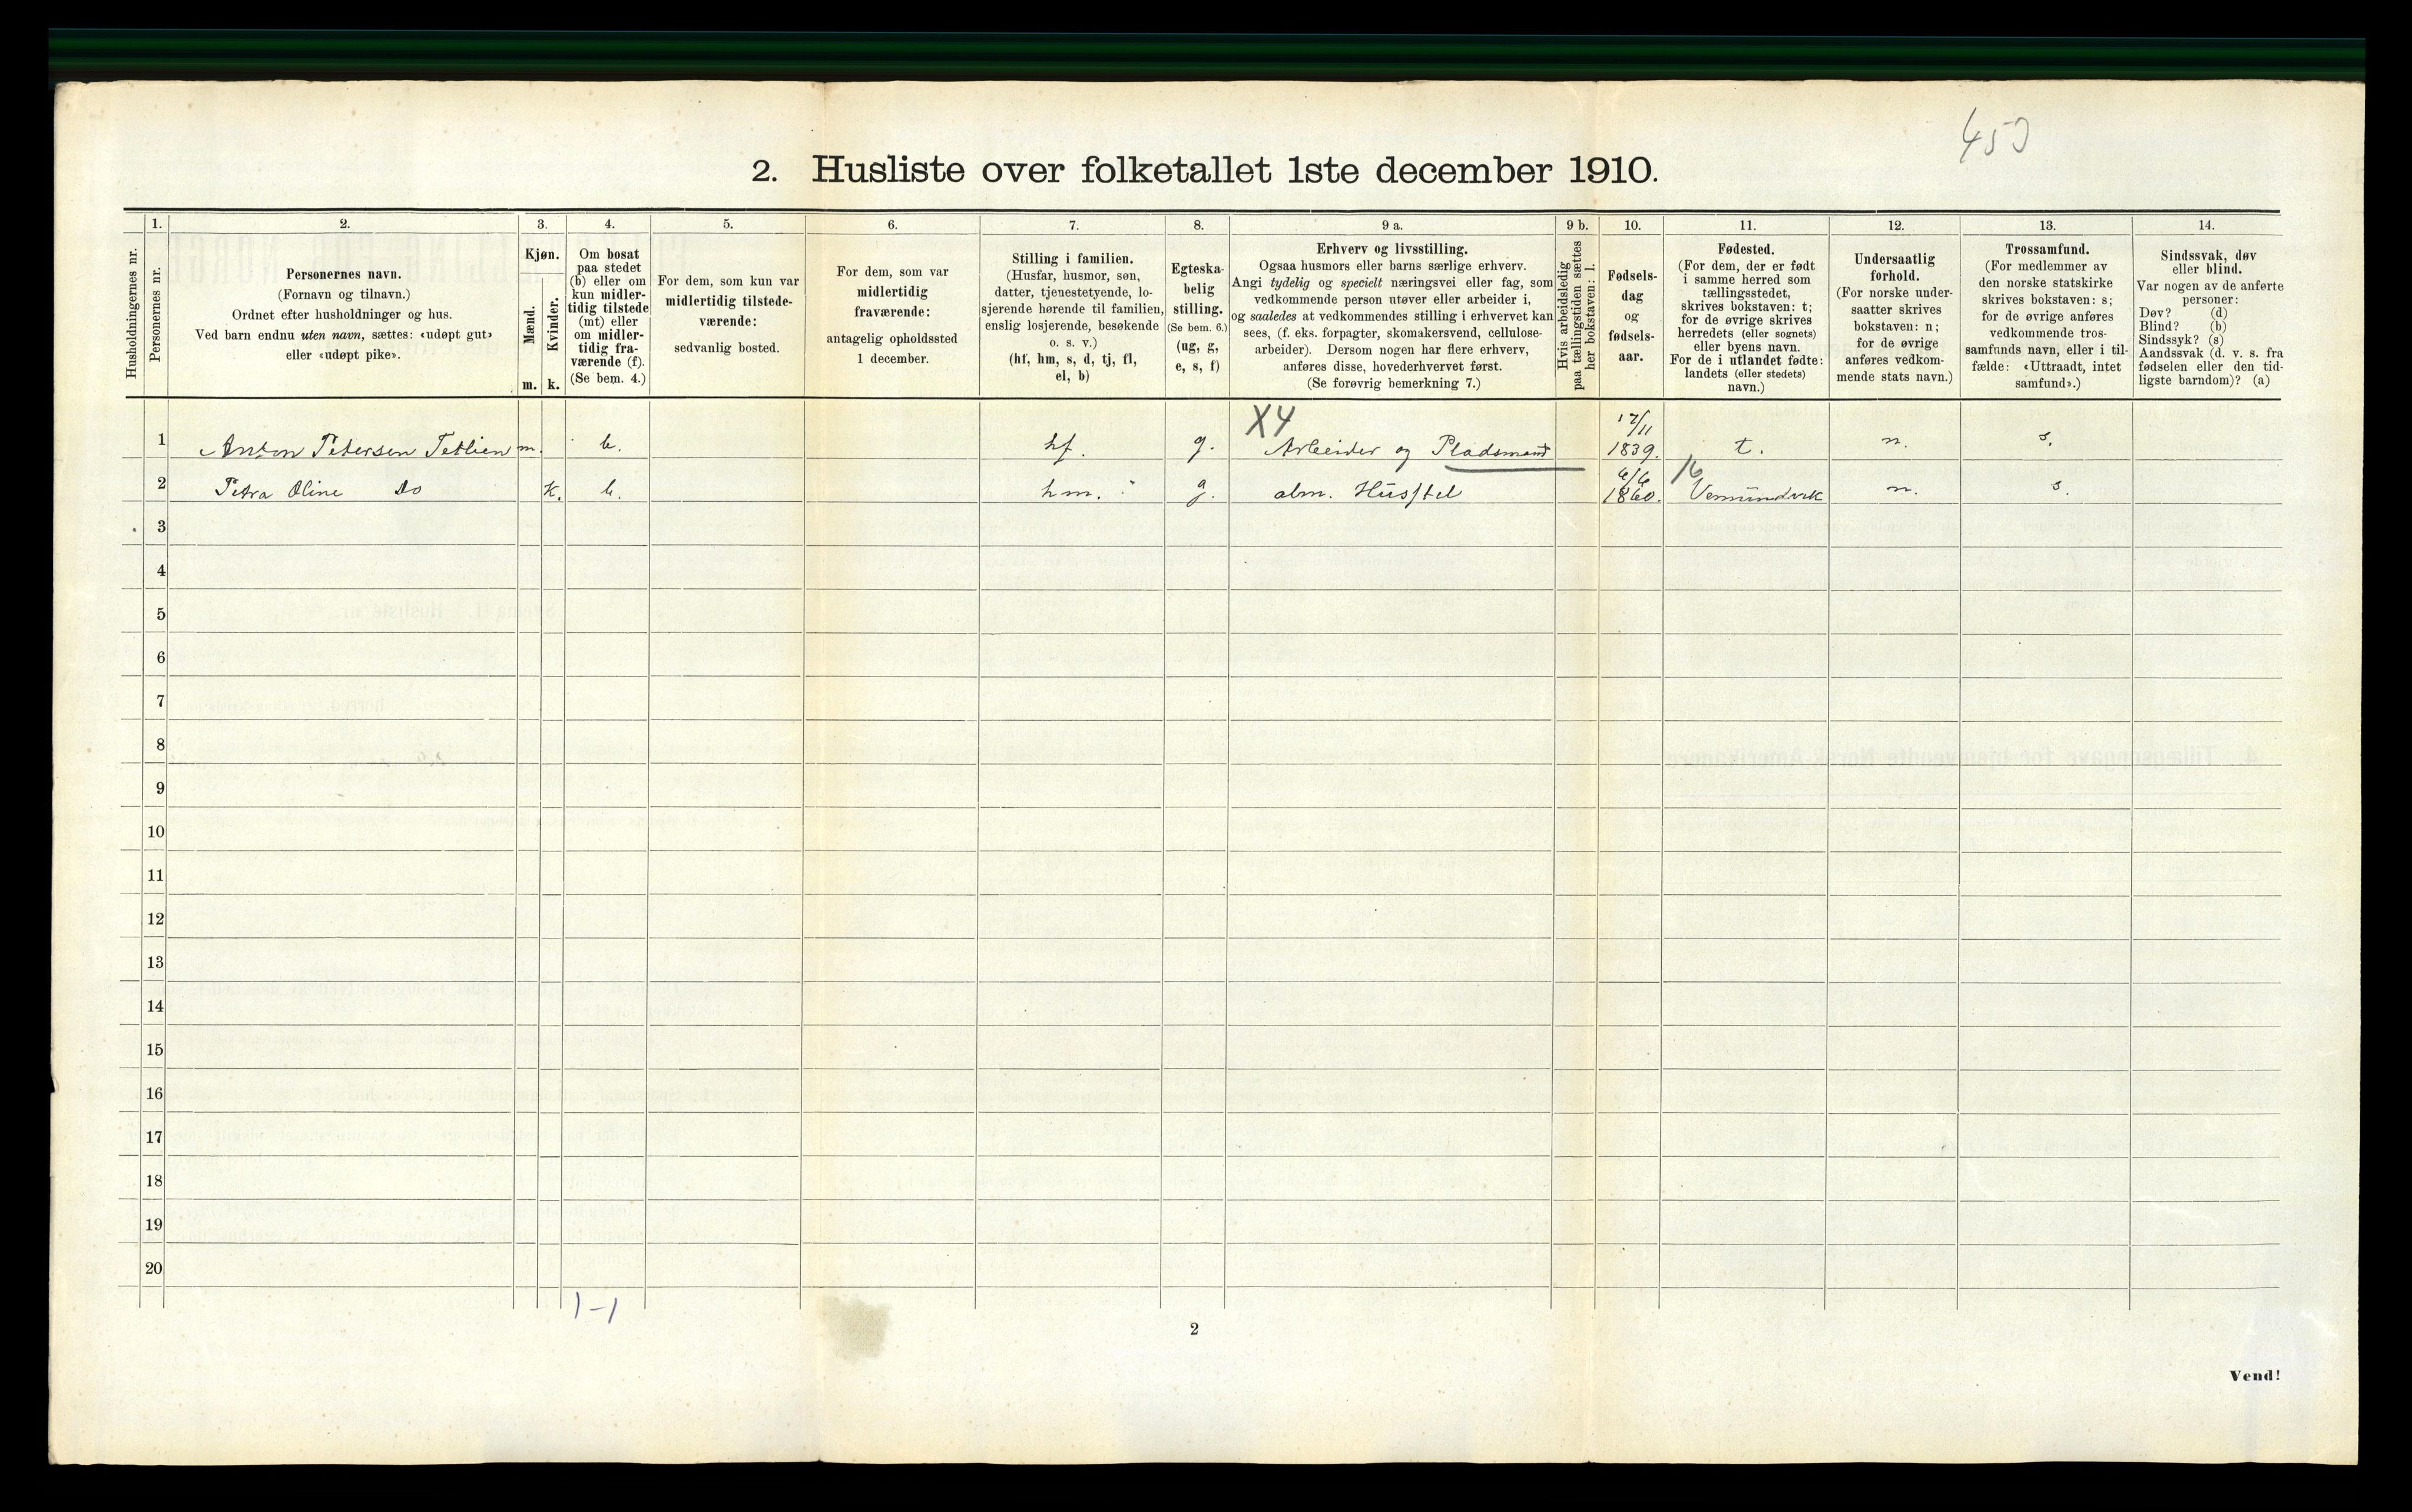 450
2. Husliste over folketallet 1ste december 1910.
Husholdningernes nr.
1.
Personernes nr.
2.
Personernes navn.
(Fornavn og tilnavn.)
Ordnet efter husholdninger og hus.
Ved barn endnu uten navn, sættes: «udøpt gut»
eller «udøpt pike».
3.
Kjøn.
Mænd.
Kvinder.
m. k.
4.
Om bosat
paa stedet
(b) eller om
kun midler-
tidig tilstede
(mt) eller
om midler-
tidig fra-
værende (f).
(Se bem. 4.)
5.
For dem, som kun var
midlertidig tilstede-
værende:
sedvanlig bosted.
6.
For dem, som var
midlertidig
fraværende:
antagelig opholdssted
1 december.
7.
Stilling i familien.
(Husfar, husmor, søn,
datter, tjenestetyende, lo-
sjerende hørende til familien,
enslig losjerende, besøkende
o. s. v.)
(hf, hm, s, d, tj, fl,
el, b)
8.
Egteska-
belig
stilling.
(Se bem. 6.)
(ug, g,
e, s, f)
9 a.
Erhverv og livsstilling.
Ogsaa husmors eller barns særlige erhverv.
Angi tydelig og specielt næringsvei eller fag, som
vedkommende person utøver eller arbeider i,
og saaledes at vedkommendes stilling i erhvervet kan
sees, (f. eks. forpagter, skomakersvend, cellulose-
arbeider). Dersom nogen har flere erhverv,
anføres disse, hovederhvervet først.
(Se forøvrig bemerkning 7.)
9 b.
Hvis arbeidsledig
paa tællingstiden sættes
her bokstaven: l.
10.
Fødsels-
dag
og
fødsels-
aar.
11.
Fødested.
(For dem, der er født
i samme herred som
tællingsstedet,
skrives bokstaven: t;
for de øvrige skrives
herredets (eller sognets)
eller byens navn.
For de i utlandet fødte:
landets (eller stedets)
navn.)
12.
Undersaatlig
forhold.
(For norske under-
saatter skrives
bokstaven: n;
for de øvrige
anføres vedkom-
mende stats navn.)
13.
Trossamfund.
(For medlemmer av
den norske statskirke
skrives bokstaven: s;
for de øvrige anføres
vedkommende tros-
samfunds navn, eller i til-
fælde: «Uttraadt, intet
samfund».)
14.
Sindssvak, døv
eller blind.
Var nogen av de anførte
personer:
Døv? (d)
Blind? (b)
Sindssyk? (s)
Aandssvak (d. v. s. fra
fødselen eller den tid-
ligste barndom)? (a)
X4 17/11
1 Anton Petersen Tetlien m. b. hf. g. Arbeider og Pladsmand 1839. t. n. s.
6/6 16
2 Petra Oline Do k. b. hm. g. alm. Husstel 1860. Vemundvik n. s.
3
4
5
6
7
8
9
10
11
12
13
14
15
16
17
18
19
20
1-1
2
Vend!